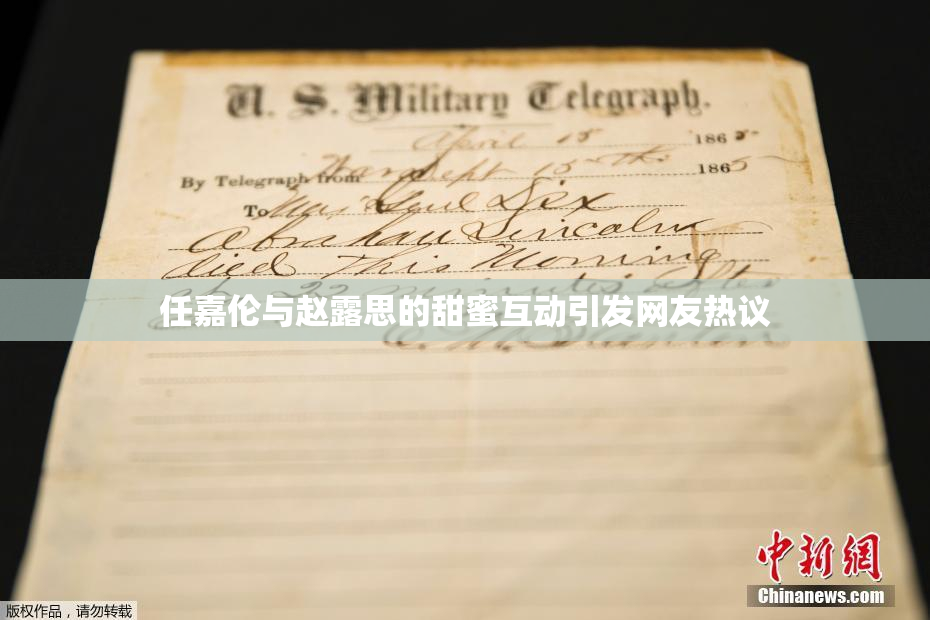 U. S. Military Telegraph.
April 15 1865
By Telegraph from War Dept 15th 1865
To Maj Genl Dix
Abraham Lincoln
died This Morning
at 22 minutes after
任嘉伦与赵露思的甜蜜互动引发网友热议
E. M. Stanton
中新网
Chinanews.com
版权作品，请勿转载